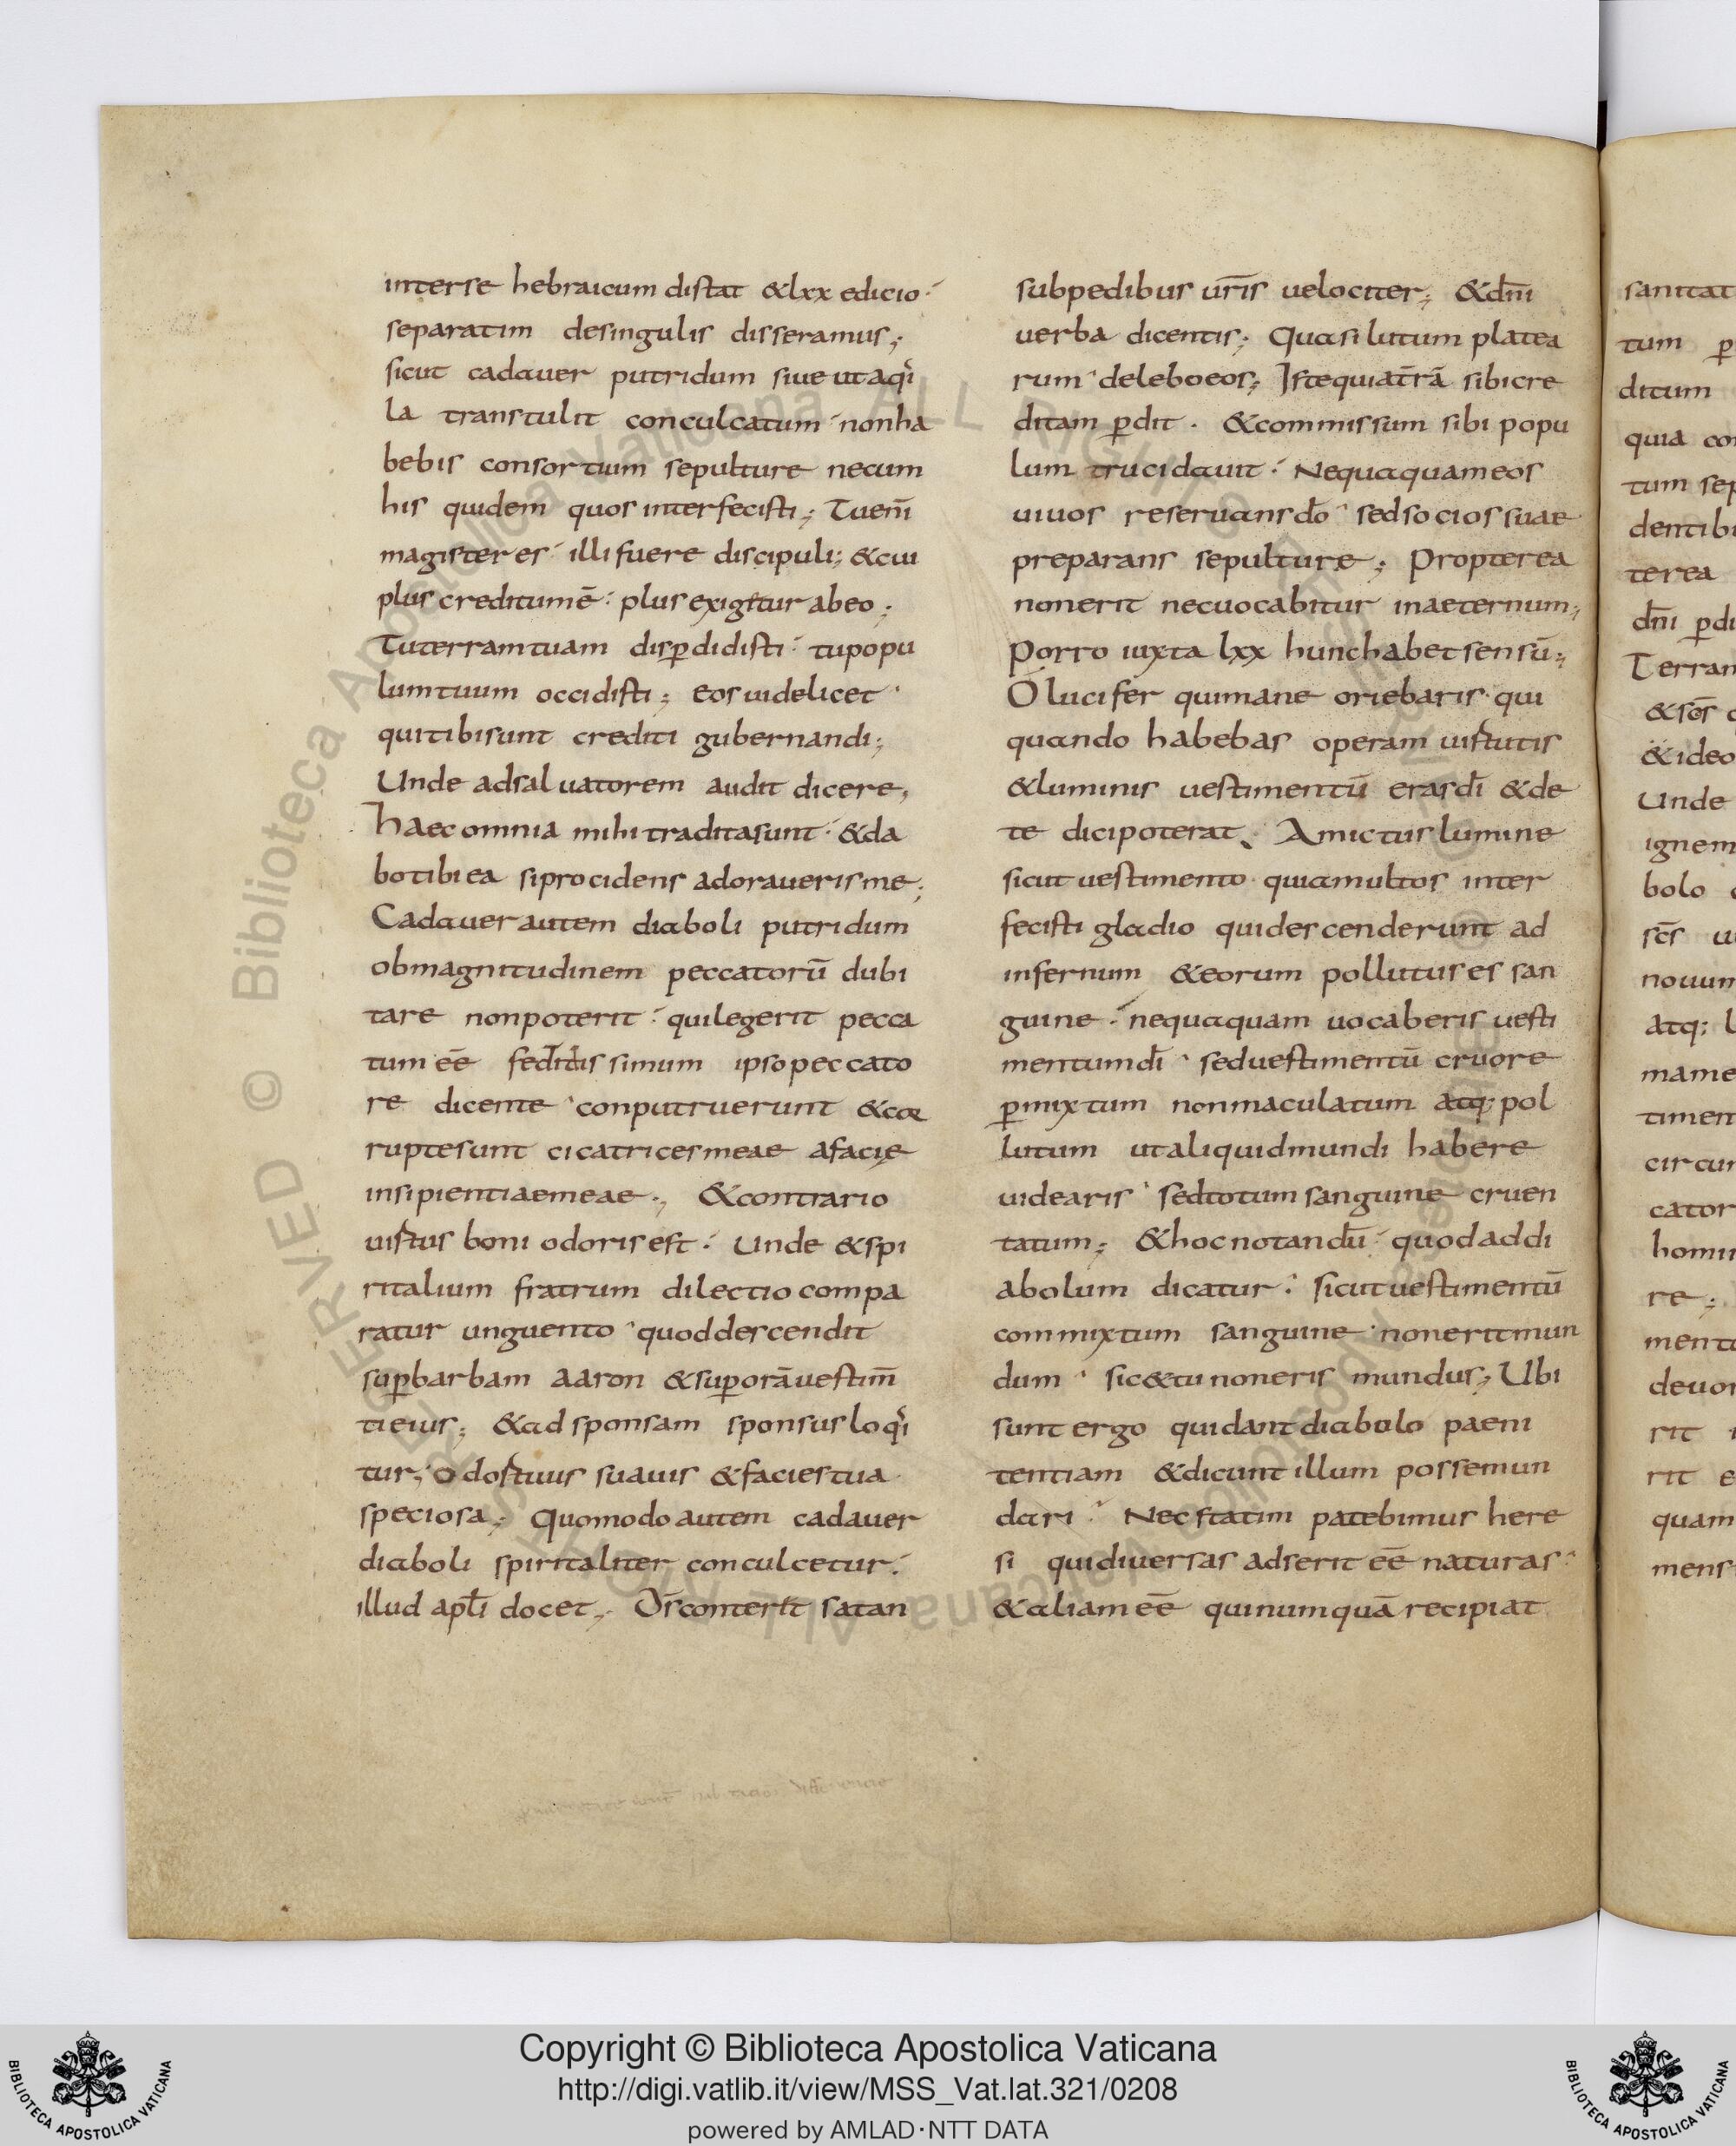 interse hebraicum distat &lxx edicio
separatim desingulis disseramus;
sicut cadauer putridum siue utaqi
la transtulit conculcatum nonha
bebis consortium sepulture necum
his quidem quos interfecisti; Tueni̅
magister es illi fuere discipuli; &cui
plus creditum e̅ plus exigitur abeo;
Tuterramtuam disp̲didisti tupopu
lumtuum occidisti; eos uidelicet
quitibisunt crediti gubernandi;
Unde adsaluatorem audit dicere,
haec omnia mihi traditasunt &da
botibi ea siprocidens adoraueris me;
Cadauer autem diaboli putridum
obmagnitudinem peccatoru̅ dubi
tare nonpoterit quilegerit pecca
tum ee̅ simum ipso peccato
re dicente conputruerunt &cor
ruptesunt cicatrices meae afacie
insipientiaemeae; &contrario
uirtus boni odoris est Unde &spi
ritalium fratrum dilectio compa
ratur unguento quoddescendit
sup̲barbam aaron &sup̲ora̅uestim̅
ti eius; &ad sponsam sponsus loqi
tur; odortuus suauis &facies tua
speciosa; Quomodo autem cadauer
diaboli spiritaliter conculcetur
illud apl̅i docet; Ds̅ conterat satan
subpedibus ur̅is uelociter; &dn̅i
uerba dicentis; Quasi lutum platea
rum deleboeos; Istequiat̅ra̅ sibicre
ditam p̲dit . &commissum sibi popu
lum trucidauit Nequaquameos
uiuos reseruans do̅ sedsocios suae
preparans sepulture; Propterea
nonerit necuocabitur inaeternum;
Porro iuxta lxx hunchabetsensu̅;
O lucifer quimane oriebaris qui
quando habebas operam uirtutis
&luminis uestimentu̅ eras di̅ &de
te dicipoterat Amictus lumine
sicut uestimento quiamultos inter
fecisti gladio quidescenderunt ad
infernum &eorum pollutus es san
guine nequaquam uocaberis uesti
mentumdi̅ seduestimentu̅ cruore
p̲mixtum nonmaculatum atq; pol
lutum utaliquidmundi habere
uidearis sedtotum sanguine cruen
tatum; &hoc notandu̅ quodaddi
abolum dicatur sicut uestimentu̅
commixtum sanguine noneritmun
dum sic&tu noneris mundus; Ubi
sunt ergo quidant diabolo paeni
tentiam &dicunt illum possemun
dari Nec statim patebimus here
si quidiuersas adserit ee̅ naturas
&aliam ee̅ quinumqua̅ recipiat
sanitat
tum p̲
ditum
quia
tum sep
dentibu
terea
dn̅i p̲di
Terram
&sc̅s
&ideo
Unde
ignem
bolo
sc̅s
nouum
atq;
mame
timent
circum
cator
homin
re;
menta
deuor
rit
rit
quam
mens
Copyright © Biblioteca Apostolica Vaticana
http://digi.vatlib.it/view/MSS_Vat.lat.321/0208
powered by AMLAD·NTT DATA
BIBLIOTECA APOSTOLICA VATICANA
BIBLIOTECA APOSTOLICA VATICANA